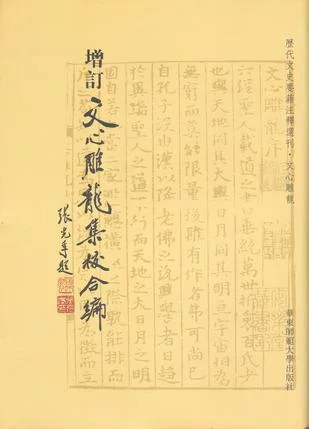 歷代文史要籍注釋選刊·文心雕龍
華東師範大學出版社
文心雕龍序
六經聖人載道之書垂統萬世折衷百氏者
也與天地同其大與日月同其明亘宇宙相為
無窮而莫能限量後雖有作者弗可尚已
自孔子沒由漢以降老佛之說興學者日趨
於異端聖人之道不行而天地之大日月之明
固自若也
能排而
為徵而主
增訂
文心雕龍集校合編
張光年題